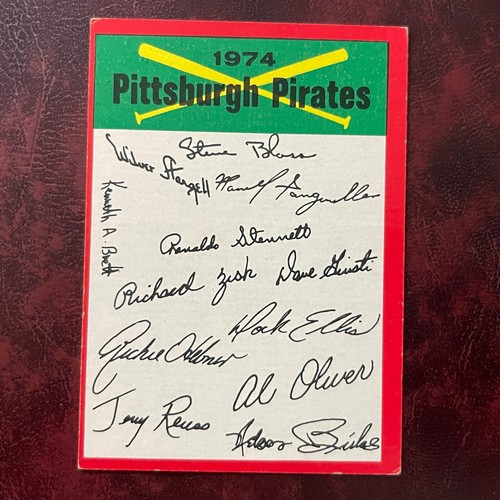 1974
Pittsburgh Pirates
Steve Blass
Wilver Stargell
Manuel Sanguillen
Kenneth A. Brett
Renaldo Stennett
Richard Zisk
Dave Giusti
Dock Ellis
Richie Hebner
Al Oliver
Jerry Reuss